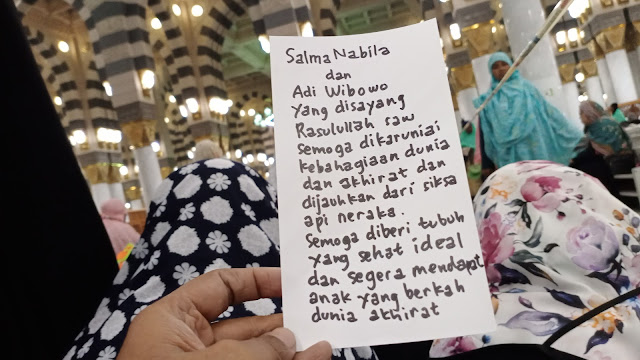 Salma Nabila
dan
Adi Wibowo
Yang disayang
Rasulullah saw
semoga dikaruniai
kebahagiaan dunia
dan akhirat dan
dijauhkan dari siksa
api neraka.
Semoga diberi tubuh
yang sehat ideal
dan segera mendapat
anak yang berkah
dunia akhirat